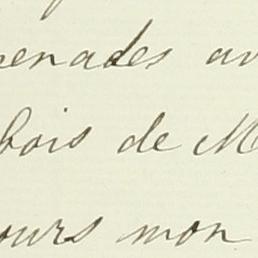 enades av
bois de M
ours mon